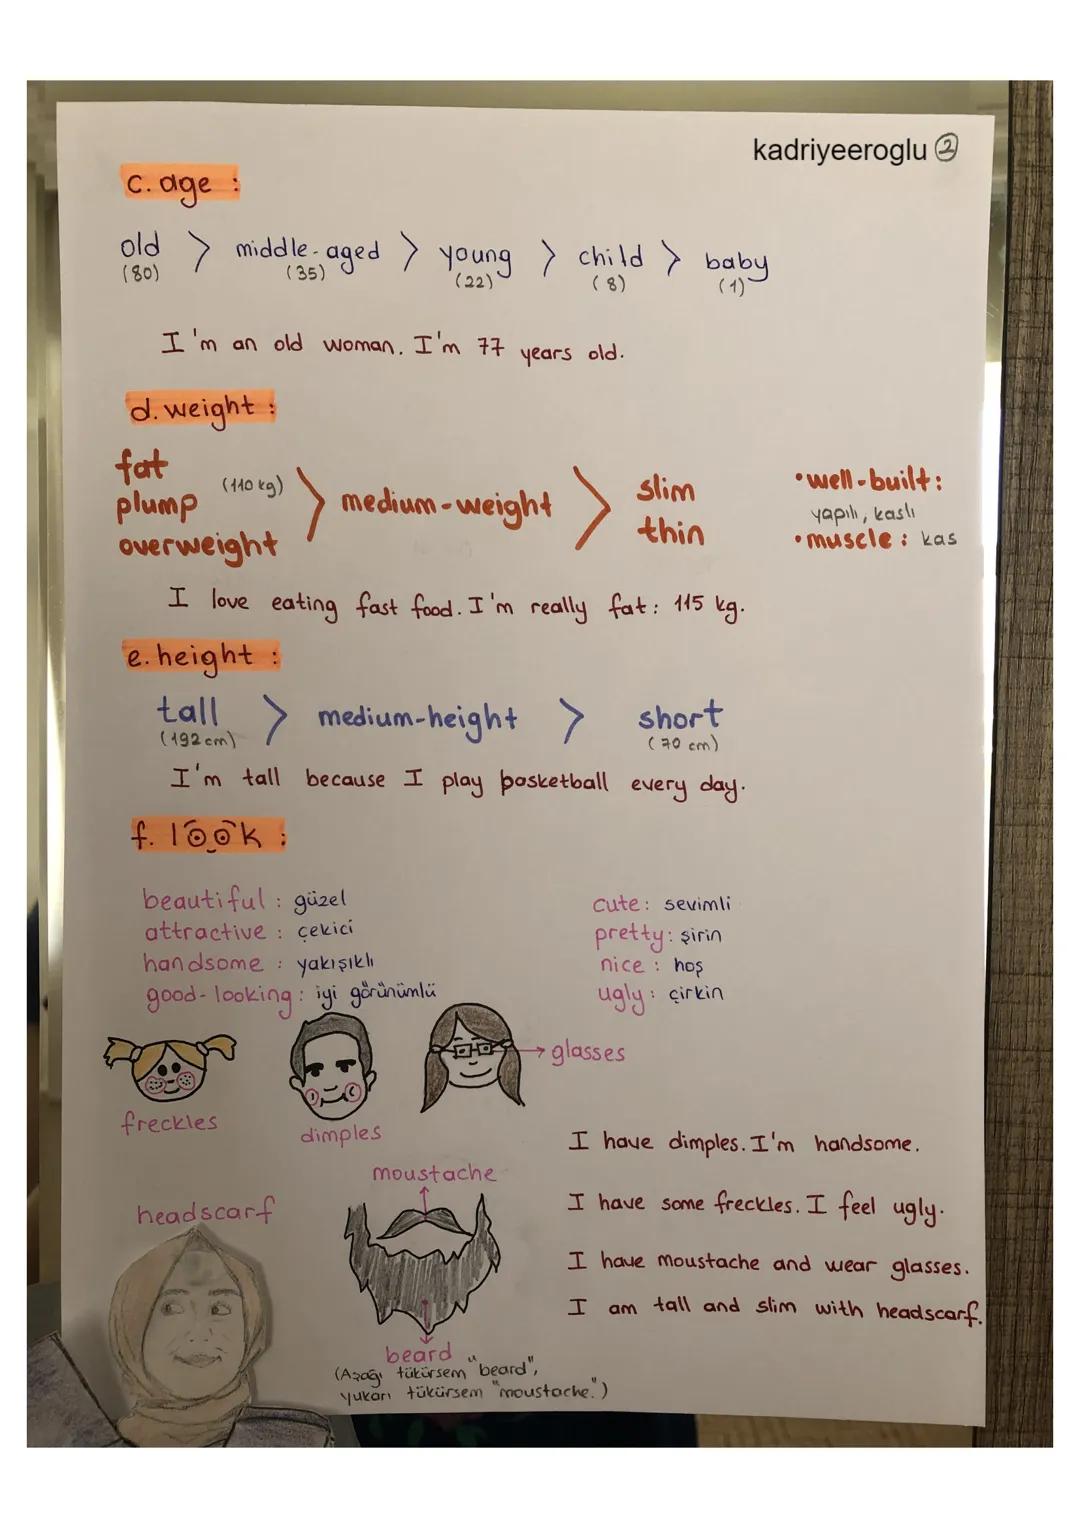 kadriyeeroglu ②
c. age :
old > middle-aged > young > child > baby
(80) (35) (22) (8) (1)
I'm an old woman. I'm 77 years old.
d. weight :
fat
plump (110 kg) > medium-weight > slim
overweight thin
• well-built:
yapılı, kaslı
• muscle: kas
I love eating fast food. I'm really fat: 115 kg.
e. height :
tall > medium-height > short
(192 cm) (70 cm)
I'm tall because I play basketball every day.
f. look :
beautiful : güzel
attractive : çekici
handsome : yakışıklı
good-looking : iyi görünümlü
cute: sevimli
pretty: şirin
nice : hoş
ugly : çirkin
glasses
freckles
dimples
moustache
headscarf
beard
(Aşağı tükürsem "beard",
yukarı tükürsem "moustache.")
I have dimples. I'm handsome.
I have some freckles. I feel ugly.
I have moustache and wear glasses.
I am tall and slim with headscarf.